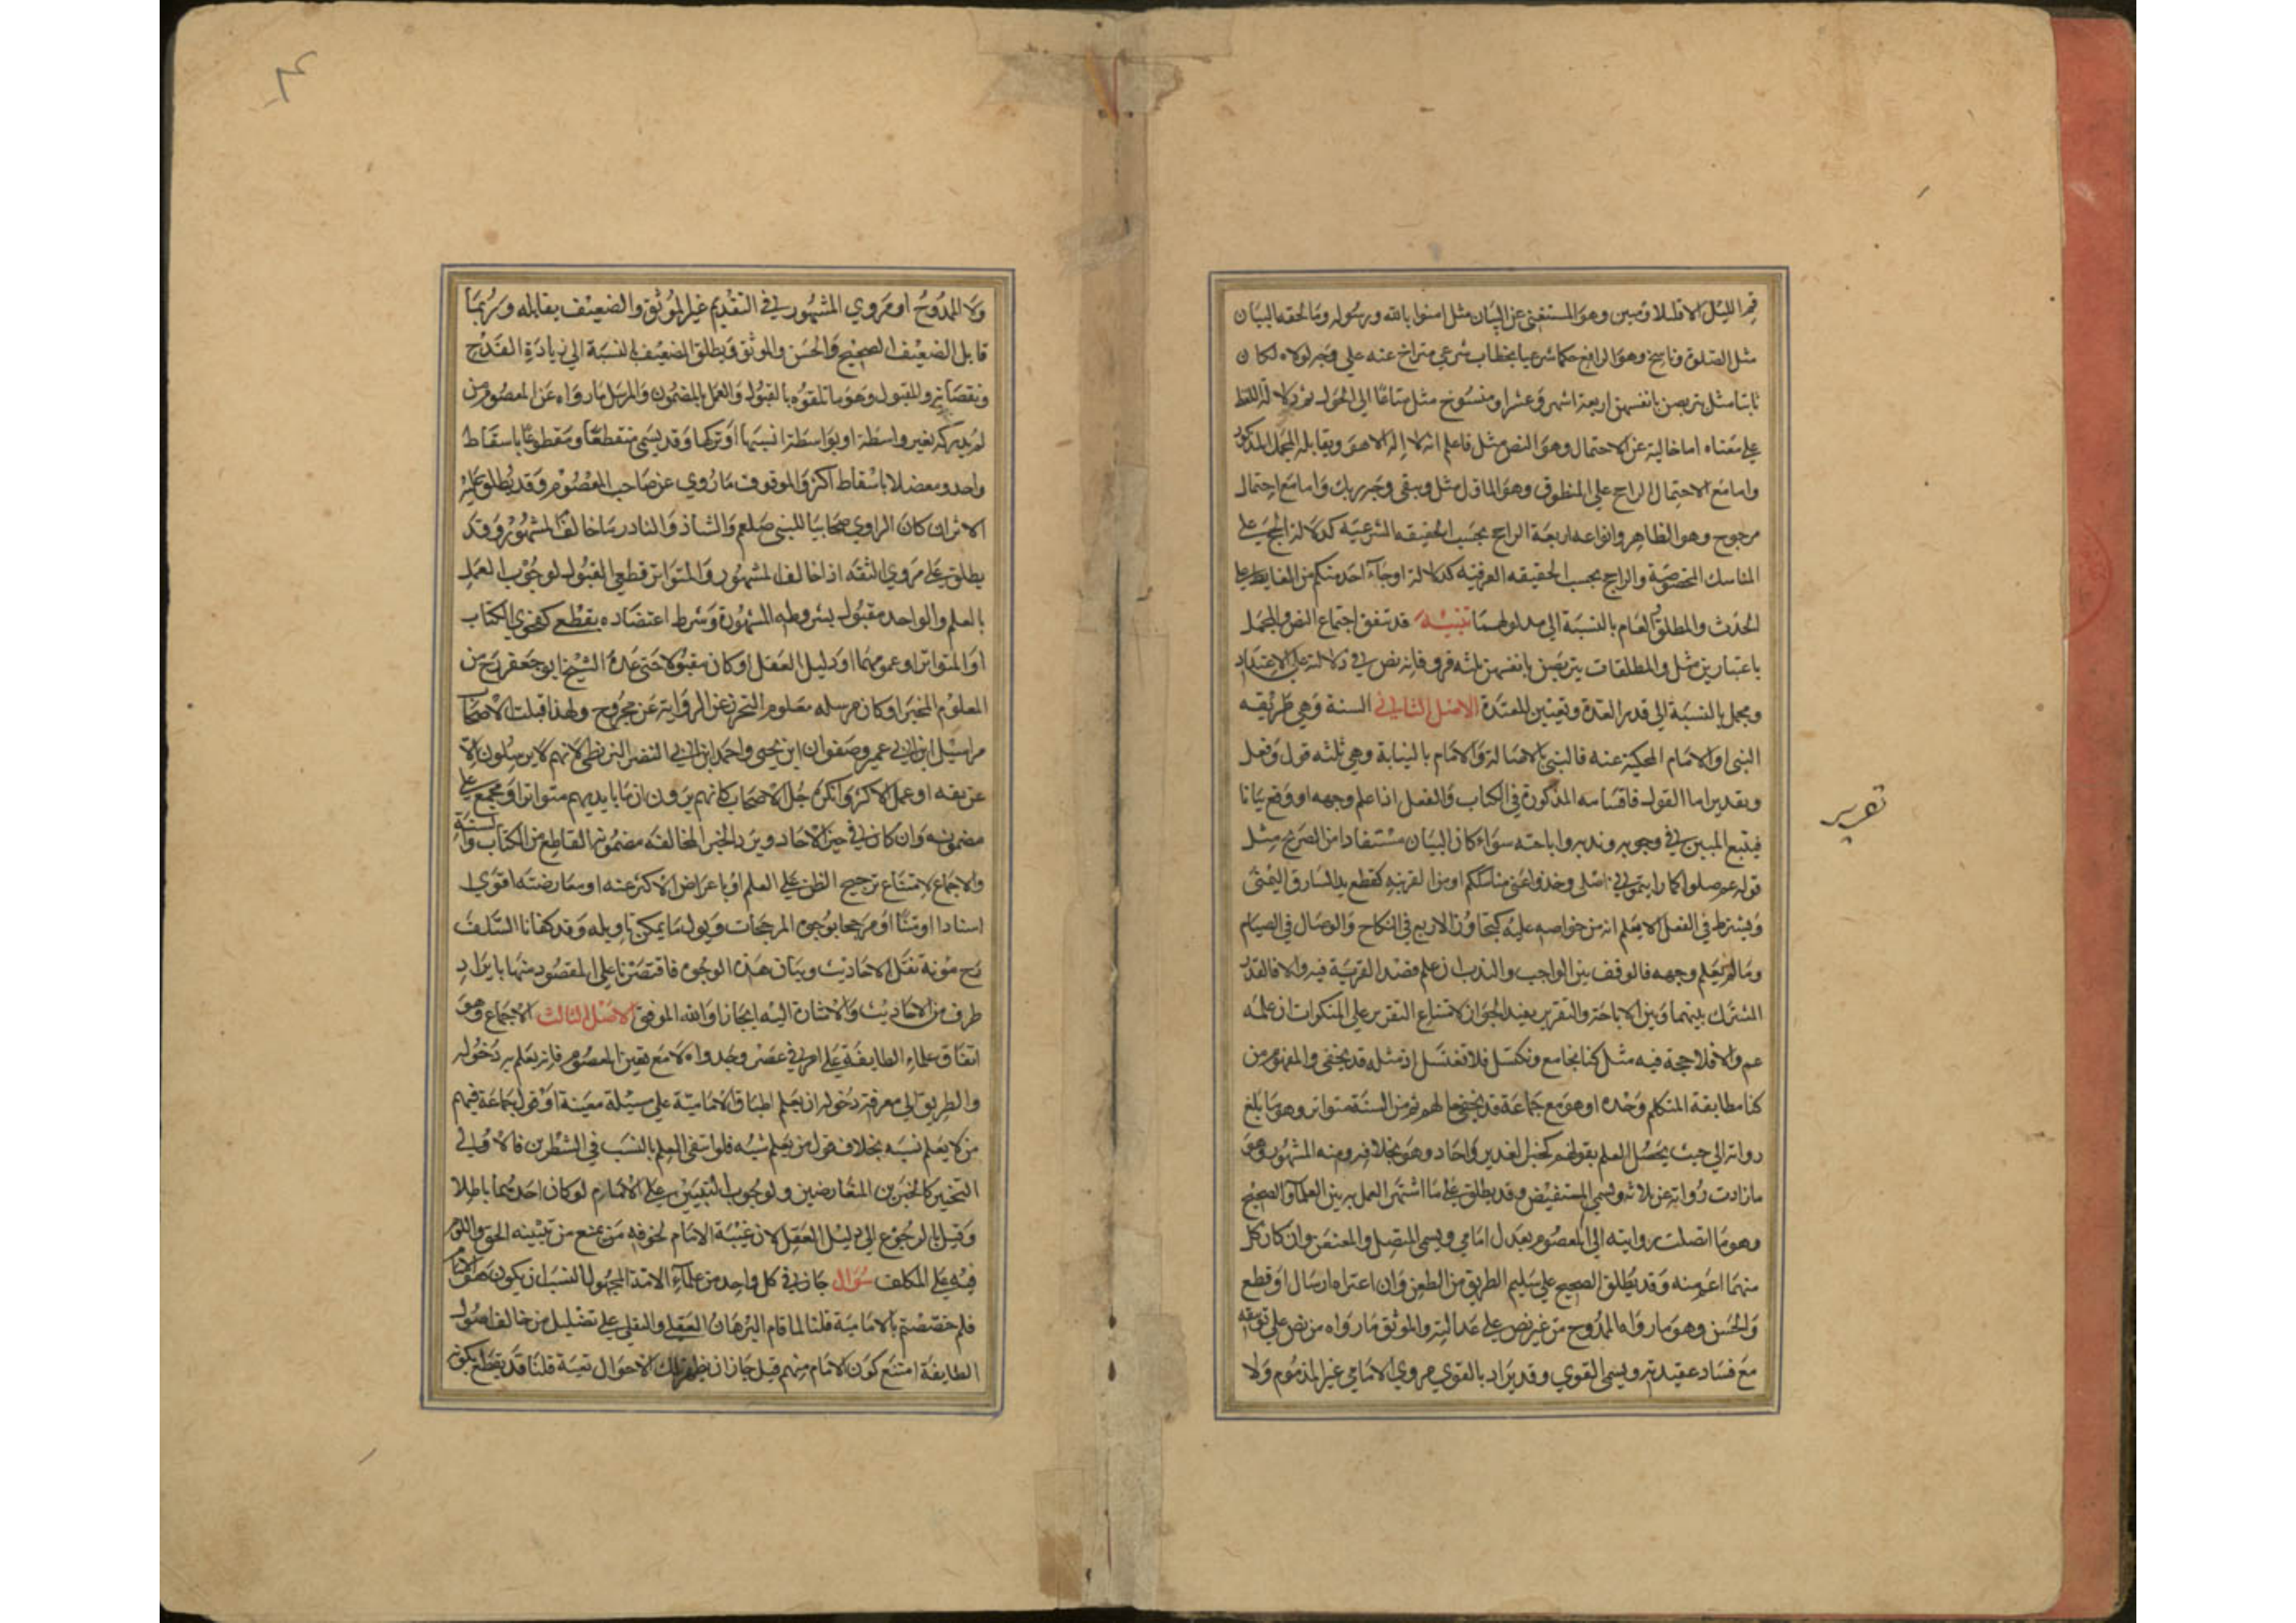 قم الليل الا قليلا ومبين وهو المستغني عن البيان مثل امنوا بالله ورسوله وما لحقه البيان
مثل الصلوة وناسخ وهو الرافع حكما شرعيا بخطاب شرعي متراخ عنه علي وجه لولاه لكان
ثابتا مثل يتربصن بانفسهن اربعة اشهر وعشرا ومنسوخ مثل متاعا الي الحول ثم دلالة اللفظ
علي معناه اما خالية عن الاحتمال وهو النص مثل فاعلم انه لا إله الا هو ويقابله المجمل المذكور
واما مع الاحتمال الراجح علي المنطوق وهو الماول مثل ويبقي وجه ربك واما مع احتمال
مرجوح وهو الظاهر وانواعه اربعة الراجح بحسب الحقيقه الشرعيه كدلالة الحج علي
المناسك المخصوصة والراجح بحسب الحقيقه العرفيه كدلالة اوجاء احد منكم من الغايط علي
الحدث والمطلق والعام بالنسبة الي مدلولهما تنبيه قد يتفق اجتماع النص والمجمل
باعتبارين مثل والمطلقات يتربصن بانفسهن ثلثه قروء فانه نص في دلالته علي الاعتداد
ومجمل بالنسبة الي قدر العدة وتعيين المعتدة الاصل الثاني السنة وهي طريقه
النبي او الامام المحكية عنه فالنبي بالاصالة والامام بالنيابة وهي ثلثه قول وفعل
وتقرير اما القول فاقسامه المذكورة في الكتاب والفعل اذا علم وجهه او وقع بيانا
فيتبع المبين في وجوبه وندبه واباحته سواء كان البيان مستفادا من الصريح مثل
قوله عم صلوا كما رايتموني اصلي وخذوا عني مناسككم او من القرينه كقطع يد السارق اليمني
ويشترط في الفعل الا يعلم انه من خواصه عليه كتجاوز الاربع في النكاح والوصال في الصيام
وما لم يعلم وجهه فالوقف بين الواجب والندب ان علم قصد القربة فيه والا فالقدر
المشترك بينهما وبين الاباحة والتقرير يفيد الجواز لامتناع التقرير علي المنكرات ان علمه
عم والا فلا حجة فيه مثل كنا نجامع ونكسل فلا نغتسل اذ مثله قد يخفي والمفهوم من
كنا مطابقة المتكلم وحده او هو مع جماعة قد يخفي حالهم ثم من السنة متواتر وهو ما بلغ
رواته الي حيث يحصل العلم بقولهم كخبر الغدير واحاد وهو بخلافه ومنه المشهور وهو
ما زادت رواته عن ثلاثه ويسمي المستفيض وقد يطلق علي ما اشتهر العمل به بين العلماء والصحيح
وهو ما اتصلت روايته الي المعصوم بعدل امامي ويسمي المتصل والمعنعن وان كان كل
منهما اعم منه وقد يطلق الصحيح علي سليم الطريق من الطعن وان اعتراه ارسال او قطع
والحسن وهو ما رواه الممدوح من غير نص علي عدالته والموثق ما رواه من نص علي توثيقه
مع فساد عقيدته ويسمي القوي وقد يراد بالقوي مروي الامامي غير المذموم ولا
تقرير
ولا الممدوح او مروي المشهور في التقديم غير الموثق والضعيف يقابله وربما
قابل الضعيف الصحيح والحسن والموثق ويطلق الضعيف بالنسبة الي زيادة القدح
ونقصانه والمقبول وهو ما تلقوه بالقبول والعمل بالمضمون والمرسل ما رواه عن المعصوم من
لم يدركه بغير واسطة او بواسطة انسيها او تركها وقد يسمي منقطعا ومقطوعا باسقاط
واحد ومعضلا باسقاط اكثر والموقوف ما روي عن صاحب المعصوم وقد يطلق عليه
الاثر ان كان الراوي صحابيا للنبي صلعم والشاذ والنادر ما خالف المشهور وقد
يطلق علي مروي الثقه اذا خالف المشهور والمتواتر قطعي القبول لوجوب العمل
بالعلم والواحد مقبول بشروطه المشهورة وشرط اعتضاده بقطعي كفحوي الكتاب
او المتواتر او عمومهما او دليل العقل او كان مقبولا حتي عده الشيخ ابو جعفر رح من
المعلوم المخبر او كان مرسله معلوم التحرز عن الرواية عن مجروح ولهذا قبلت الاصحاب
مراسيل ابن ابي عمير وصفوان ابن يحيي واحمد ابن ابي النصر البزنطي لانهم لا يرسلون الا
عن ثقه او عمل الاكثر وانكره جل الاصحاب كانهم يرون ان ما بايديهم متواترا او مجمع علي
مضمونه وان كان في حيز الاحاد ويرد الخبر لمخالفه مضمونها القاطع من الكتاب والسنة
والاجماع لامتناع ترجيح الظن علي العلم او باعراض الاكثر عنه او معارضته اقوي
اسنادا او متنا او مرجحا بوجوه المرجحات ويول ما يمكن تاويله وقد كفانا السلف
رح مونة نقل الاحاديث وبيان هذه الوجوه فاقتصرنا علي المقصود منها بايراد
طرف من الاحاديث والاشارة اليه ايجازا والله الموفق الاصل الثالث الاجماع وهو
اتفاق علماء الطايفة علي امر في عصر وجدواه لا مع تعين المعصوم فانه يعلم به دخوله
والطريق الي معرفة دخوله ان يعلم اطباق الامامية علي مسئلة معينة او قول جماعة فيهم
من لا يعلم نسبه بخلاف قول من يعلم نسبه فلو انتفي العلم بالنسب في الشطرين فالاولي
التخيير كالخبرين المتعارضين ولوجوب التبيين علي الامام لو كان احدهما باطلا
وقيل بالرجوع الي دليل العقل لان غيبة الامام لخوفه من يمنع من تبيينه الحق واللوم
فيه علي المكلف سؤال جاز في كل واحد من علماء الامة المجهول النسب ان يكون هو الامام
فلم خصصتم بالامامية قلنا لما قام البرهان العقلي والنقلي علي تضليل من خالف اصول
الطايفة امتنع كون الامام منهم قيل جاز ان يظهر تلك الاحوال تقية قلنا قد يقطع بكونه